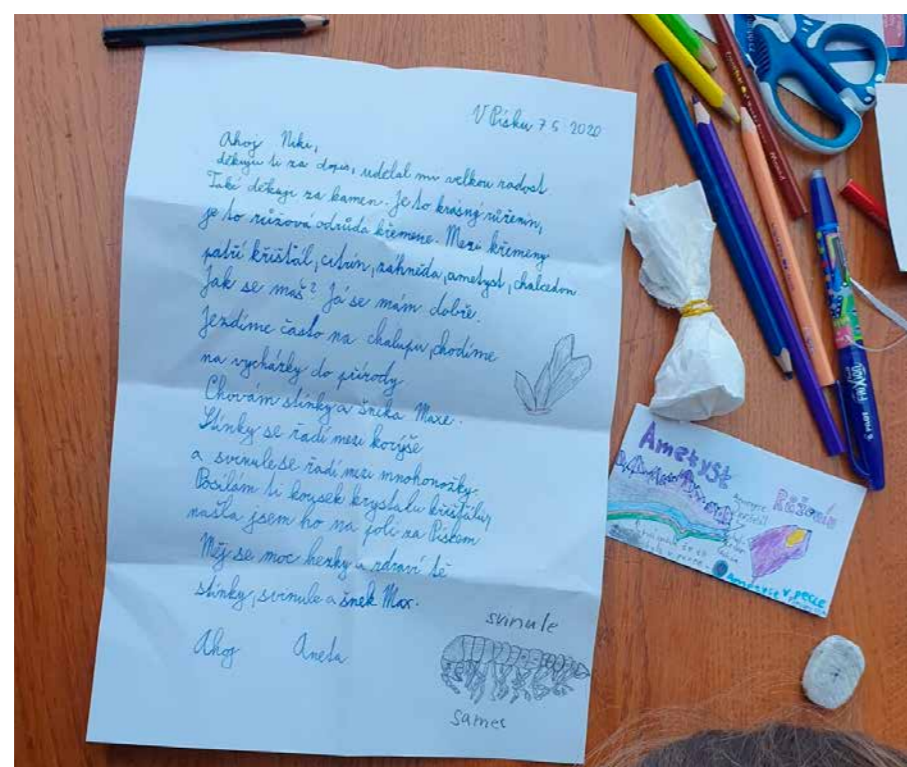 V Písku 7 5 2020
Ahoj Niki,
děkuju ti za dopis, udělal mi velkou radost
Také děkuji za kamen. Je to krásný růženín,
je to růžová odrůda křemene. Mezi křemeny
patří křišťál, citrín, záhněda, ametyst, chalcedon
Jak se máš? Já se mám dobře.
Jezdíme často na chalupu, chodíme
na vycházky do přírody
Chovám stínky a šneka Maxe.
Stínky se řadí mezi korýše
a svinule se řadí mezi mnohonožky
Posílám ti kousek krystalu křišťálu,
našla jsem ho na poli za Pískem
Měj se moc hezky a zdraví tě
stínky, svinule a šnek Max.
Ahoj Aneta
svinule
samec
Ametyst
Růženín
Ametyst v pecce